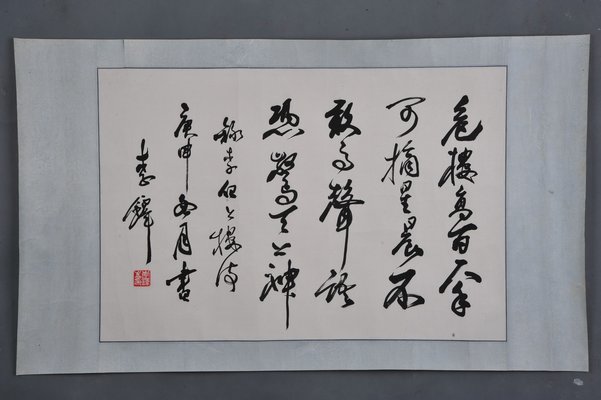 危樓高百尺手
可摘星辰不
敢高聲語
恐驚天上神
錄李白上樓詩
庚申冬月書
李鐸